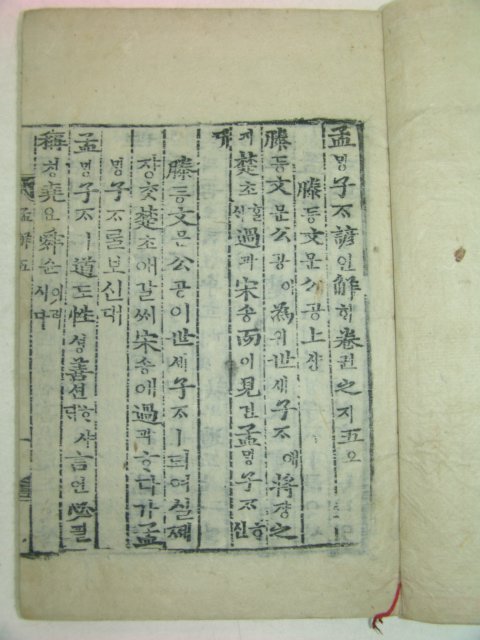 孟ᄆᆡᆼ子ᄌᆞ諺언解ᄒᆡ卷권之지五오
滕등文문公공上샹
滕등文문公공이爲위世셰子ᄌᆞ애將쟝之
지楚초ᄒᆞᆯ식過과宋송而이見견孟ᄆᆡᆼ子ᄌᆞᄒᆞ신
대
滕등文문公공이世셰子ᄌᆞㅣ되여실제
쟝ᄎᆞ楚초애갈ᄉᆡ宋송애過과ᄒᆞ다가孟
ᄆᆡᆼ子ᄌᆞᄅᆞᆯ보신대
孟ᄆᆡᆼ子ᄌᆞㅣ道도性셩善션ᄒᆞ샤ᄃᆡ言언必필
稱칭堯요舜슌이러시다
孟解五